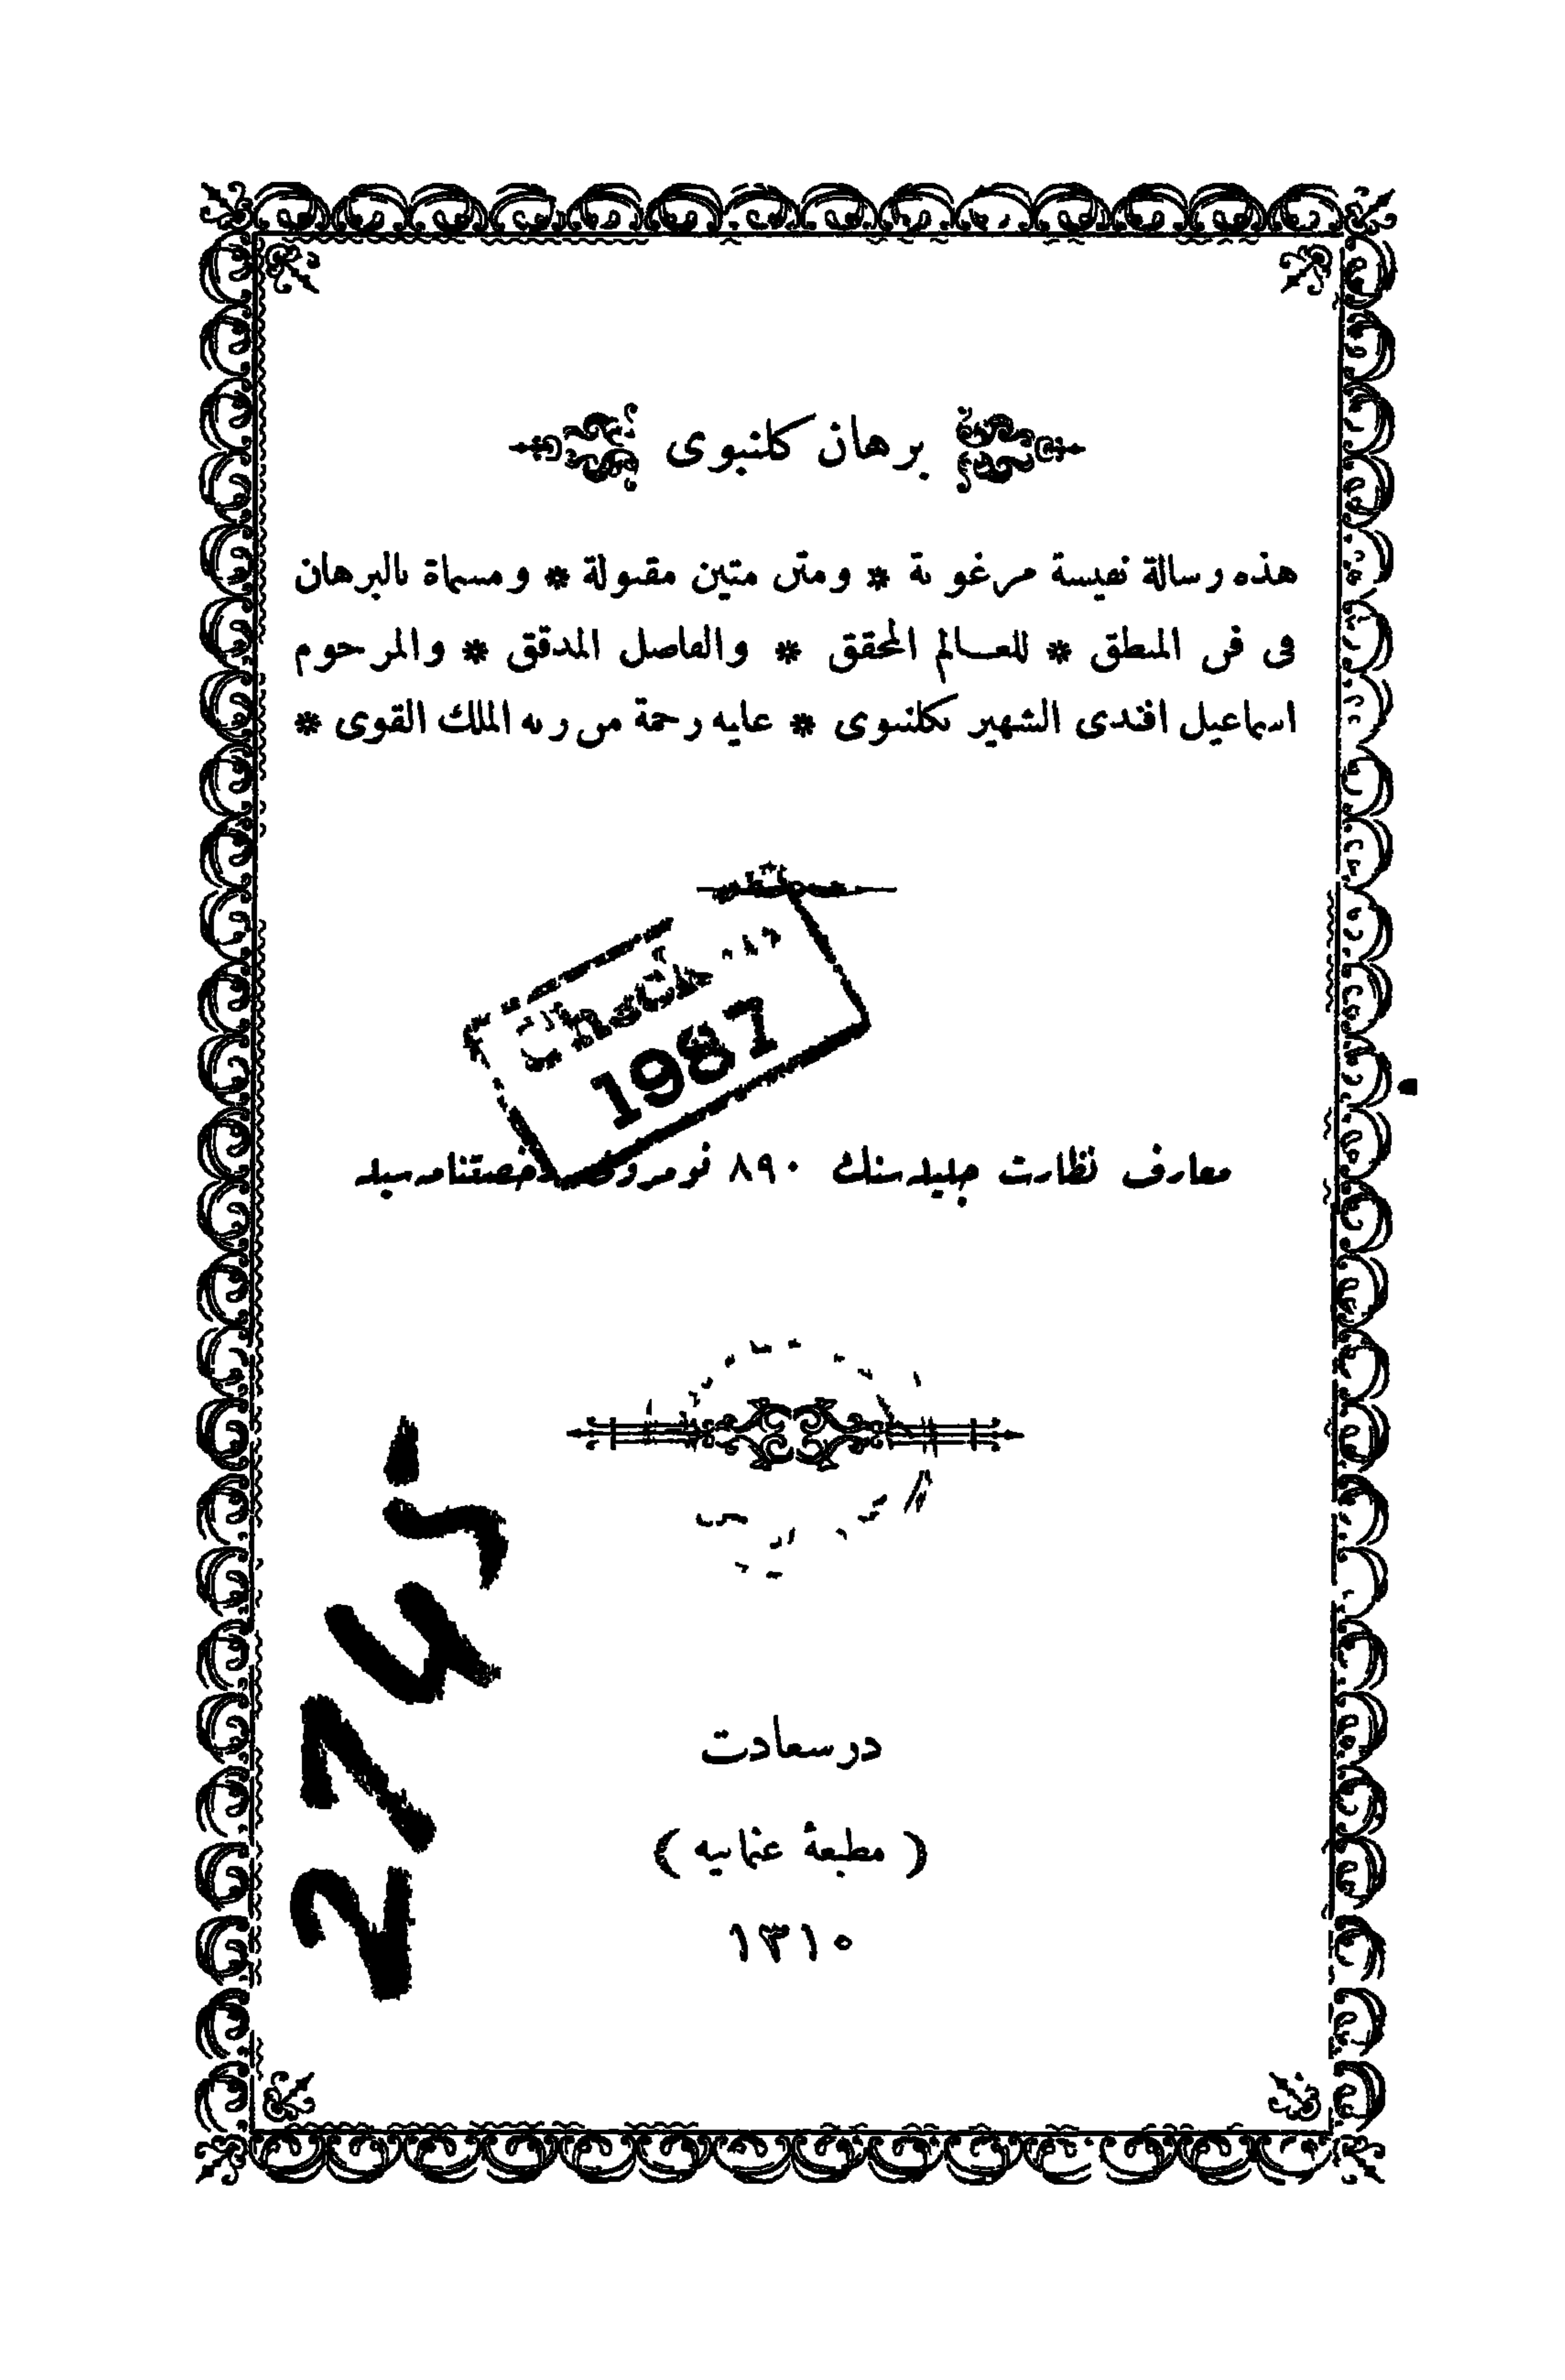 برهان كلنبوى
هذه رسالة نفيسة مرغوبة * ومتن متين مقبولة * ومسماة بالبرهان
فى فن المنطق * للعالم المحقق * والفاضل المدقق * والمرحوم
اسماعيل افندى الشهير بكلنبوى * عليه رحمة من ربه الملك القوى *
1987
معارف نظارت جليله سنك ٨٩٠ نومرولى رخصتنامه سيله
2745
درسعادت
( مطبعهٔ عثمانيه )
١٣١٠